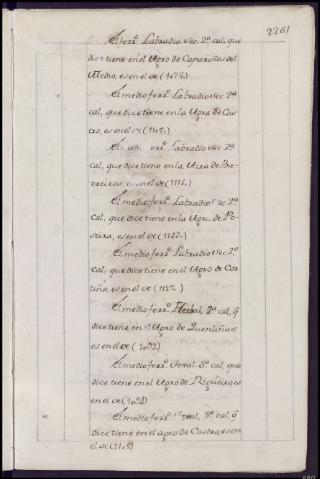 2261
El ferº. Labradio sec. 2ª cal, que
dice tiene en el Agro de Caparinas del
Medio, es en el de (1078.)
El medio ferº. Labradio sec 2ª
cal, que dice tiene en la Agra de Cas
cro, es en el de (1108.)
El medio ferº. labradio sec 2ª
cal, que dice tiene en la Agra de Ba-
rreiros, es en el de (1115.)
El medio ferº. Labradio sec 2ª
Cal, que dice tiene en la Agra de Po-
seira, es en el de (1123.)
El medio ferº. Labradio sec. 2ª
cal, que dice tiene en el Agro de Cor
tiña, es en el de (1127.)
El medio ferº. 2ª cal, q̃
dice tiene en el Agro de Quentiñas
es en el de (1092)
El medio ferº. 3ª cal, que
dice tiene en el Agro de
es en el de (1092)
El medio ferº. 3ª cal, q̃
dice tiene en el agro de Castra es en
el de